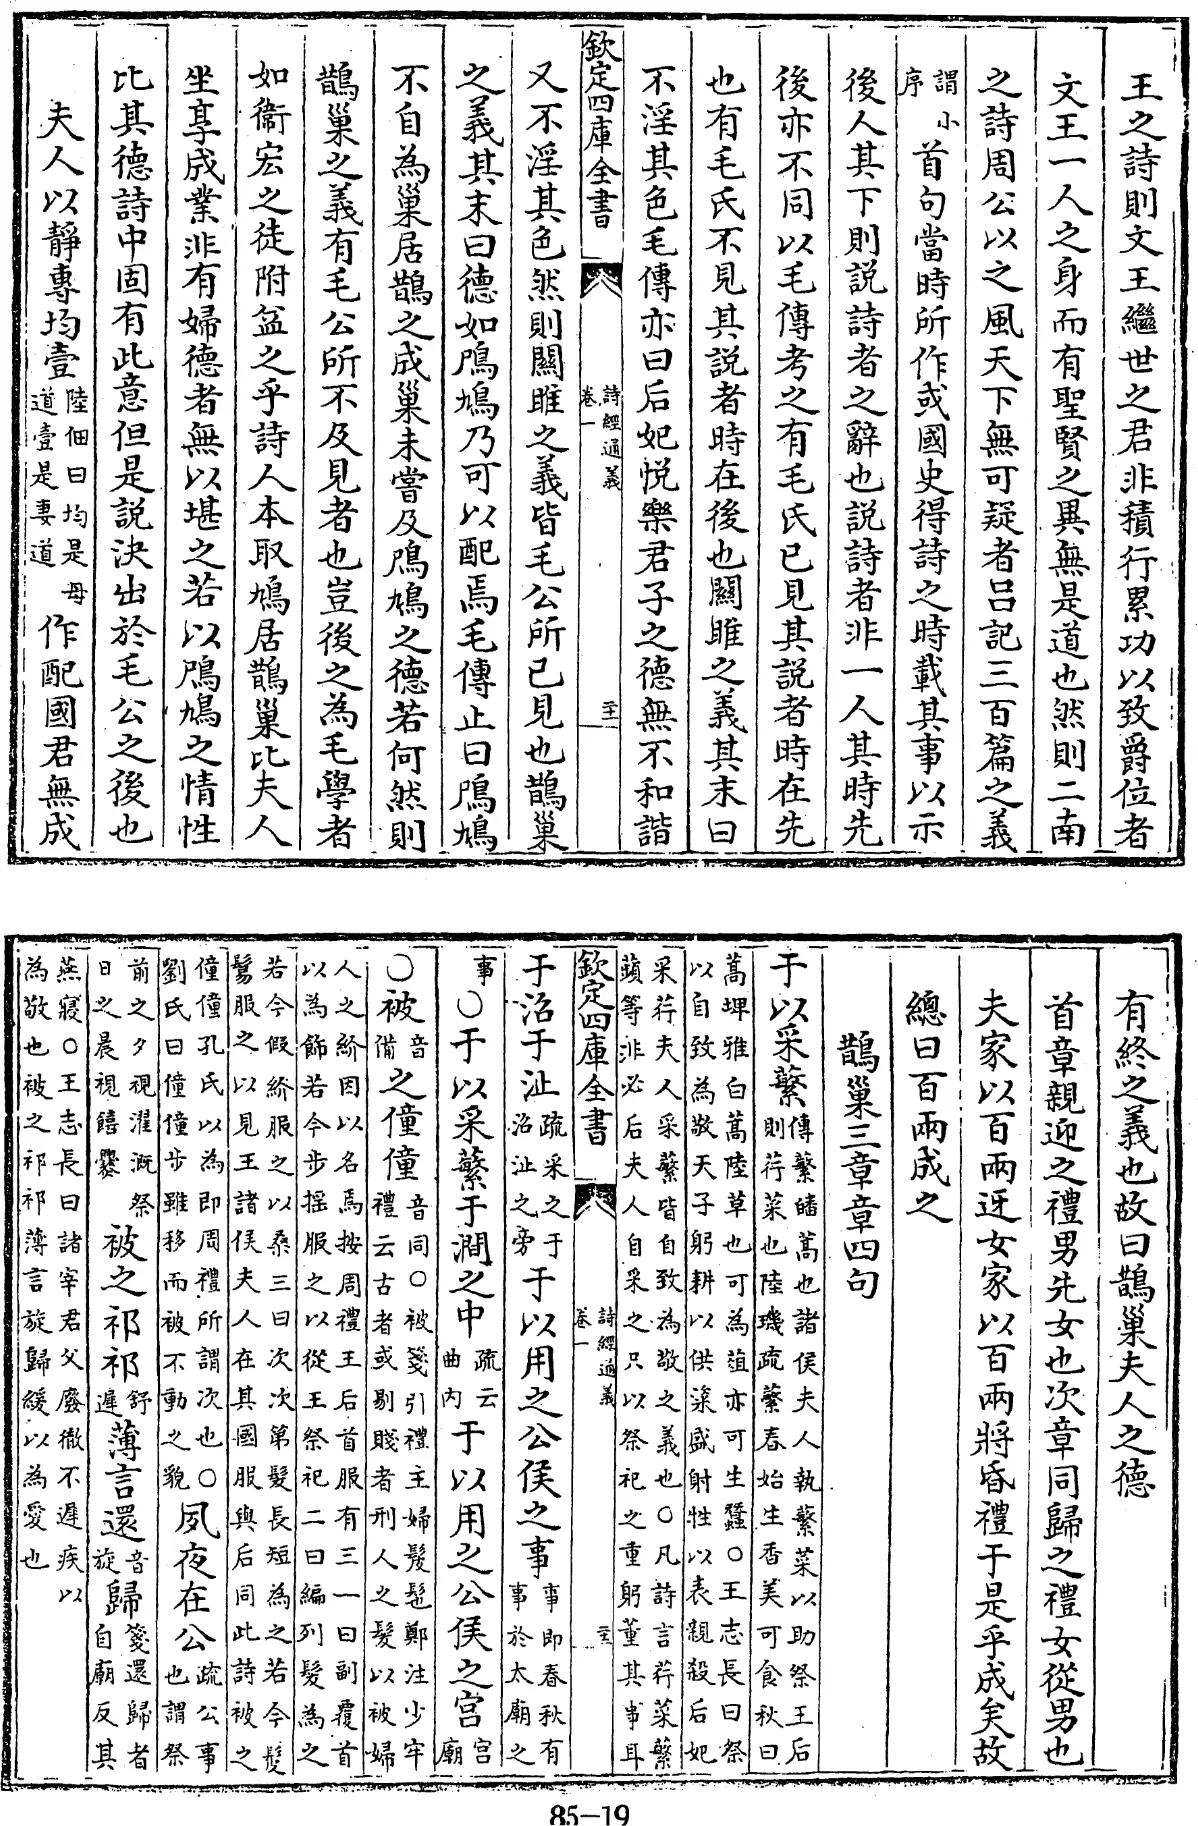 王之詩則文王繼世之君非積行累功以致爵位者
文王一人之身而有聖賢之異無是道也然則二南
之詩周公以之風天下無可疑者呂記三百篇之義
謂小序首句當時所作或國史得詩之時載其事以示
後人其下則説詩者之辭也説詩者非一人其時先
後亦不同以毛傳考之有毛氏已見其説者時在先
也有毛氏不見其説者時在後也關雎之義其末曰
不淫其色毛傳亦曰后妃悦樂君子之德無不和諧
欽定四庫全書
詩經通義
卷一
又不淫其色然則關雎之義皆毛公所已見也鵲巢
之義其末曰德如鳲鳩乃可以配焉毛傳止曰鳲鳩
不自為巢居鵲之成巢未嘗及鳲鳩之德若何然則
鵲巢之義有毛公所不及見者也豈後之為毛學者
如衞宏之徒附益之乎詩人本取鳩居鵲巢比夫人
坐享成業非有婦德者無以堪之若以鳲鳩之情性
比其德詩中固有此意但是説決出於毛公之後也
夫人以靜專均壹陸佃曰均是母道壹是妻道作配國君無成
有終之義也故曰鵲巢夫人之德
首章親迎之禮男先女也次章同歸之禮女從男也
夫家以百兩迓女家以百兩將昏禮于是乎成矣故
總曰百兩成之
鵲巢三章章四句
于以采蘩傳蘩皤蒿也諸侯夫人執蘩菜以助祭王后則荇菜也陸璣疏蘩春始生香美可食秋曰
蒿埤雅白蒿陸草也可為葅亦可生蠶○王志長曰祭以自致為敬天子躬耕以供粢盛射牲以表親殺后妃
采荇夫人采蘩皆自致為敬之義也○凡詩言荇菜蘩蘋等非必后夫人自采之只以祭祀之重躬董其事耳
欽定四庫全書
詩經通義
卷一
于沼于沚疏采之于沼沚之旁于以用之公侯之事事即春秋有事於太廟之
事○于以采蘩于澗之中疏云曲内于以用之公侯之宫宫廟
○被音備之僮僮音同○被箋引禮主婦髲髢鄭注少牢禮云古者或剔賤者刑人之髮以被婦
人之紒因以名焉按周禮王后首服有三一曰副覆首以為飾若今步揺服之以從王祭祀二曰編列髮為之
若今假紒服之以桑三曰次次第髮長短為之若今髲鬄服之以見王諸侯夫人在其國服與后同此詩被之
僮僮孔氏以為即周禮所謂次也○劉氏曰僮僮步雖移而被不動之貌夙夜在公疏公事也謂祭
前之夕視濯溉祭日之晨視饎爨被之祁祁舒遲薄言還音旋歸箋還歸者自廟反其
燕寢○王志長曰諸宰君父廢徹不遲疾以為敬也被之祁祁薄言旋歸緩以為愛也
85-19